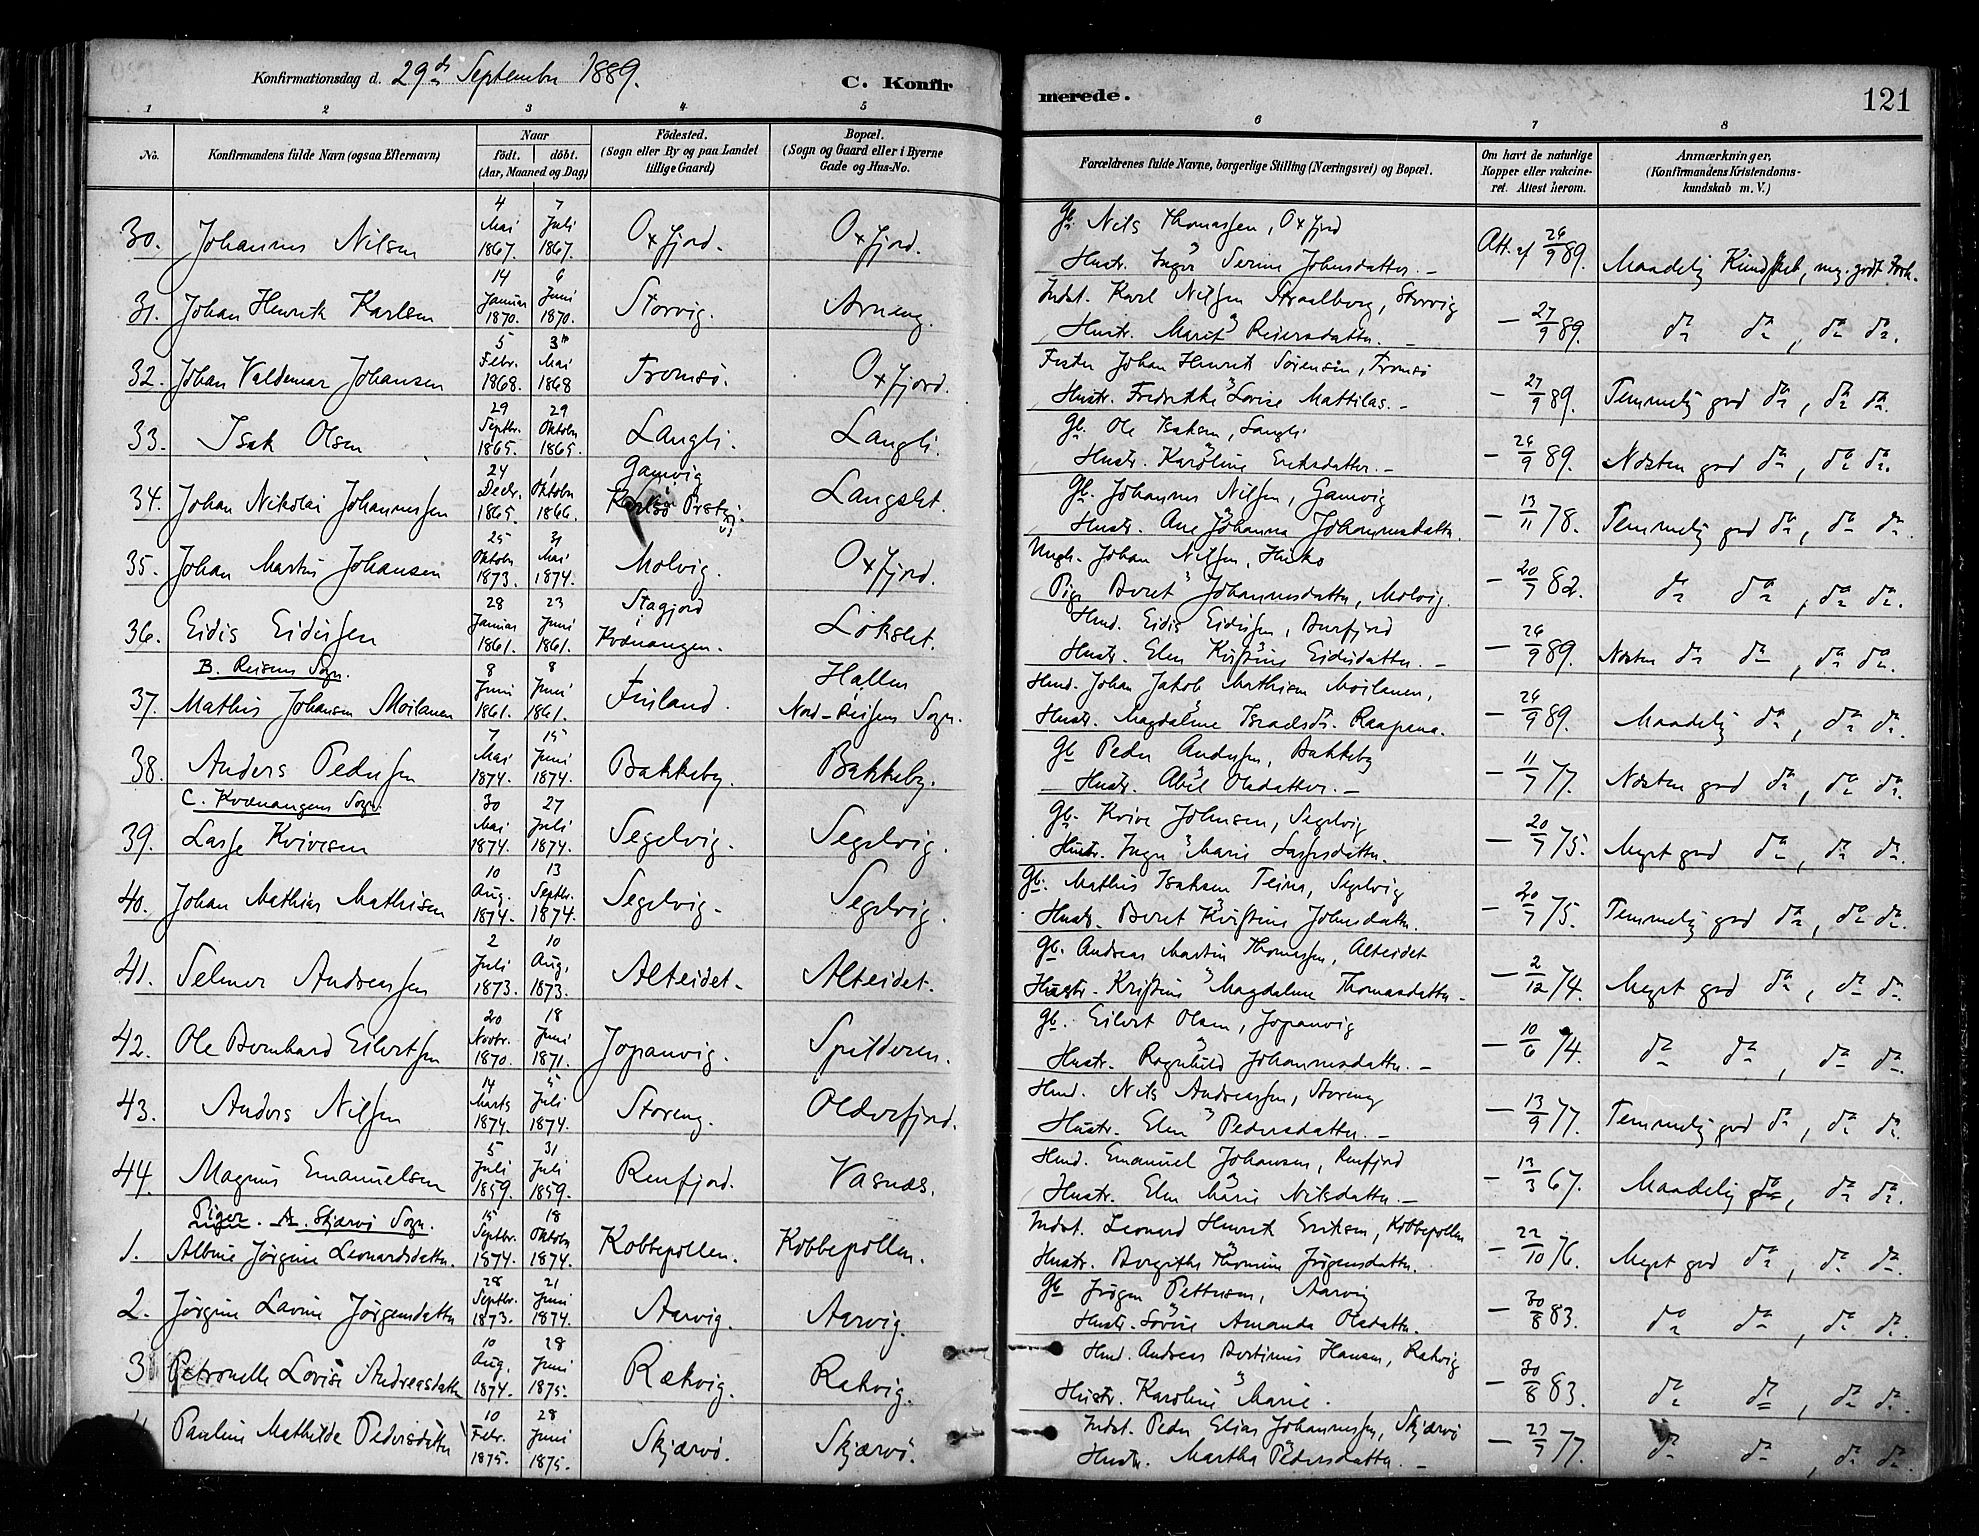 Konfirmationsdag d. 29de September 1889.
C. Konfir
merede.
121
1 2 3 4 5 6 7 8
No.
Konfirmandens fulde Navn (ogsaa Efternavn)
Naar
födt. döbt.
(Aar, Maaned og Dag)
Födested.
(Sogn eller By og paa Landet
tillige Gaard)
Bopæl.
(Sogn og Gaard eller i Byerne
Gade og Hus-No.
Forældrenes fulde Navne, borgerlige Stilling (Næringsvei) og Bopæl.
Om havt de naturlige
Kopper eller vakcine-
ret. Attest herom.
Anmærkninger,
(Konfirmandens Kristendoms-
kundskab m. V.)
30. Johannes Nilsen 4 Mai 1867. 7 Juli 1867. Oxfjord. Oxfjord. Gb. Nils Thomassen, Oxfjord
Hustr. Inger Serine Johnsdatter. Att. af 26/9 89. Maadelig Kundskab, meg. godt Forh.
31. Johan Henrik Karlsen 14 Januar 1870. 6 Juni 1870. Storvig. Arneng. Indst. Karl Nilsen Straalberg, Storvig
Hustr. Marit Reiersdatter. — 27/9 89. do do, do do.
32. Johan Valdemar Johansen 5 Febr. 1868. 3 Mai 1868 Tromsö. Oxfjord. Johan Henrik Sörensen, Tromsö
Hustr. Fredrikke Lovise Mattilas. — 27/9 89. Temmelig god do, do do.
33. Isak Olsen 29 Septbr. 1865. 29 Oktober 1865. Langli. Langli. Gb. Ole Isaksen, Langli
Hustr. Karoline Eriksdatter. — 26/9 89. Næsten god do, do do.
34. Johan Nikolai Johannessen 24 Decbr. 1865. 1 Oktober 1866. Gamvig
Karlsö Prstgj. Langslet. Gb. Johannes Nilsen, Gamvig
Hustr. Ane Johanna Johannesdatter. — 13/11 78. Temmelig god do, do do.
35. Johan Martin Johansen 25 Oktober 1873. 31 Mai 1874. Molvig. Oxfjord. Ungk. Johan Nilsen,
Pige Beret Johannesdatter, Molvig. — 20/7 82. do do, do do.
36. Eidis Eidissen 28 Januar 1861. 23 Juni 1861. Stagjord
Kvænangen. Lökslet. Hmd. Eidis Eidissen, Burfjord
Hustr. Elen Kristine Eidisdatter. — 26/9 89. Næsten do do, do do.
B. Reisens Sogn.
37. Mathis Johansen Moilanen 8 Juni 1861. 8 Juni 1861. Finland. Hallen
Nord-Reisens Sogn. Hmd. Johan Jakob Mathisen Moilanen,
Hustr. Magdalene Israelsdr. Raapana. — 26/9 89. Maadelig do, do do.
38. Anders Pedersen 7 Mai 1874. 15 Juni 1874. Bakkeby. Bakkeby. Gb Peder Andersen, Bakkeby
Hustr. Abel Olsdatter. — 11/7 77. Næsten god do, do do.
C. Kvænangens Sogn.
39. Lasse Kvivesen 30 Mai 1874. 27 Juli 1874. Segelvig. Segelvig. Gb. Kvive Johnsen, Segelvig
Hustr. Inger Marie Lassesdatter. — 20/7 75. Meget god do, do do.
40. Johan Mathias Mathisen 10 Aug. 1874. 13 Septbr. 1874. Segelvig. Segelvig. Gb. Mathis Isaksen Teina, Segelvig
Hustr. Beret Kristine Johnsdatter. — 20/7 75. Temmelig god do, do do.
41. Selmer Andreassen 2 Juli 1873. 10 Aug. 1873. Alteidet. Alteidet. Gb. Andreas Martin Thomassen, Alteidet
Hustr. Kristine Magdalene Thomasdatter — 2/12 74. Meget god do, do do.
42. Ole Bernhard Eilertsen 20 Novbr. 1870. 18 Juni 1871. Jopanvig. Spilderen. Gb. Eilert Olsen, Jopanvig
Hustr. Ragnhild Johannesdatter. — 10/6 74. do do, do do.
43. Anders Nilsen 14 Marts 1874. 5 Juli 1874. Storeng. Olderfjord. Hmd. Nils Andreassen, Storeng
Hustr. Elen Pedersdatter. — 13/9 77. Temmelig god do, do do.
44. Magnus Emanuelsen 5 Juli 1859. 31 Juli 1859. Renfjord. Vasnæs. Hmd. Emanuel Johansen, Renfjord
Hustr. Elen Marie Nilsdatter. — 12/3 67. Maadelig do, do do.
Piger. A. Skjærvö Sogn.
1. Albine Jörgine Leonardsdatter. 15 Septbr. 1874. 18 Oktober 1874. Kobbepollen. Kobbepollen. Indst. Leonard Henrik Eriksen, Kobbepollen
Hustr. Bergithe Thomine Jörgensdatter. — 22/10 76. Meget god do, do do.
2. Jörgine Lavine Jörgensdatter 28 Septbr. 1873. 21 Juni 1874. Aarvig. Aarvig. Gb Jörgen Pettersen, Aarvig
Hustr. Amanda Olsdatter. — 30/8 83. do do, do do.
3 Petronelle Lovise Andreasdatter 10 Aug. 1874. 28 Juni 1875. Rakvig. Rakvig. Hmd. Andreas Bertinius Hansen, Rakvig
Hustr. Karoline Marie. — 30/8 83. do do, do do.
Pauline Mathilde Pedersdatter 10 Febr. 1875. 28 Juni 1875. Skjærvö. Skjærvö. Indst. Peder Elias Johannessen, Skjærvö
Hustr. Martha Pedersdatter. — 23/7 77. do do, do do.